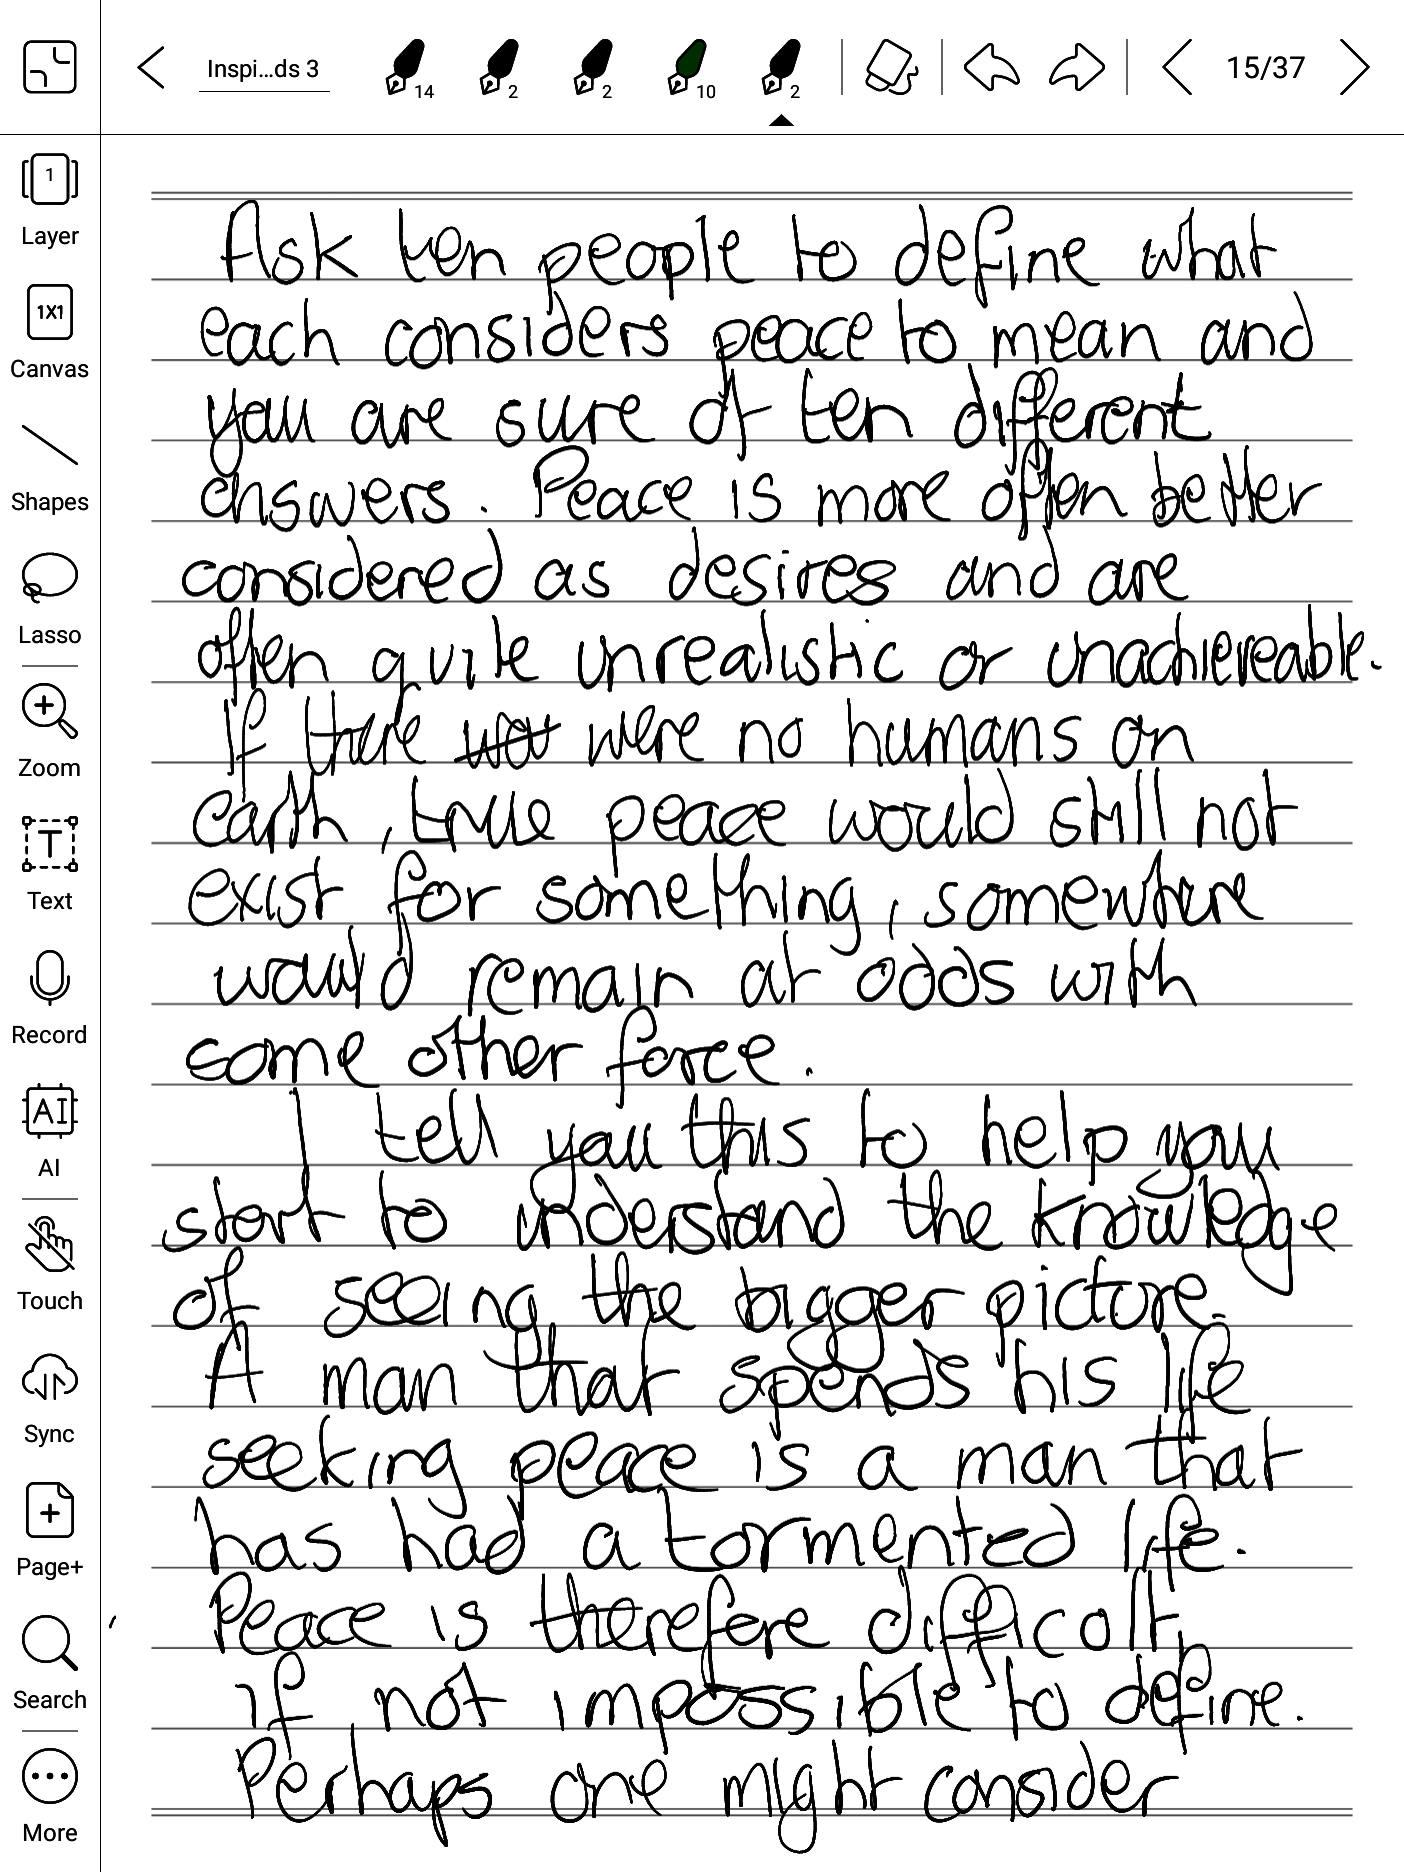 Inspi...ds 3
14
2
2
10
2
15/37
1
Layer
1X1
Canvas
Shapes
Lasso
Zoom
T
Text
Record
AI
AI
Touch
Sync
Page+
Search
More
Ask ten people to define what
each considers peace to mean and
you are sure of ten different
answers. Peace is more often better
considered as desires and are
often quite unrealistic or unachieveable.
If there were no humans on
earth, true peace would still not
exist for something, somewhere
would remain at odds with
some other force.
I tell you this to help you
start to understand the knowledge
of seeing the bigger picture.
A man that spends his life
seeking peace is a man that
has had a tormented life.
Peace is therefere difficolt,
if not impossible to define.
Perhaps one might consider